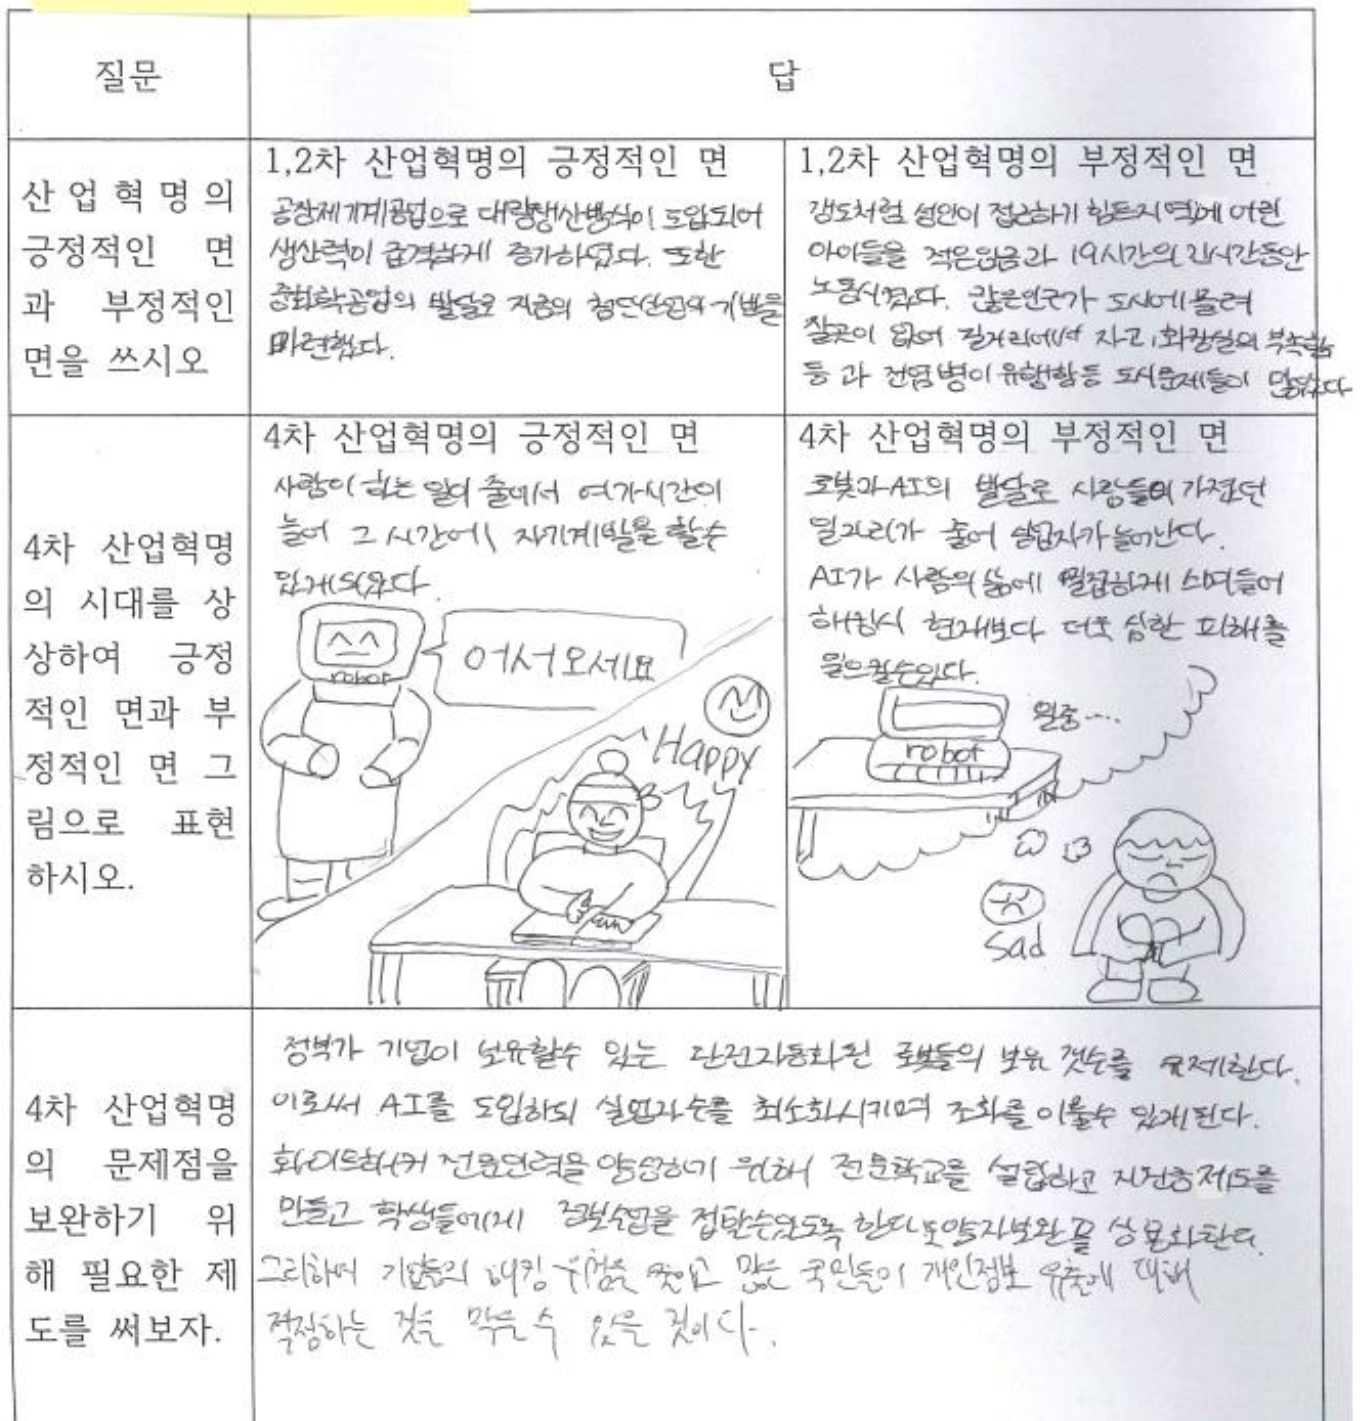 질문
답
산업혁명의
긍정적인 면
과 부정적인
면을 쓰시오
1,2차 산업혁명의 긍정적인 면
공장제 기계공업으로 대량생산방식이 도입되어
생산력이 급격하게 증가하였다. 또한
중화학공업의 발달로 지금의 첨단산업의 기반을
마련했다.
1,2차 산업혁명의 부정적인 면
갱도처럼 성인이 접근하기 힘든지역에 어린
아이들을 적은임금과 19시간의 시간동안
노동시켰다. 많은인구가 도시에 몰려
잘곳이 없어 길거리에서 자고, 화장실의 부족함
등 과 전염병이 유행함등 도시문제들이 많았다
4차 산업혁명
의 시대를 상
상하여 긍정
적인 면과 부
정적인 면 그
림으로 표현
하시오.
4차 산업혁명의 긍정적인 면
사람이 하는 일이 줄어서 여가시간이
늘어 그 시간에 자기계발을 할수
있게되었다.
robot
어서오세요
신
Happy
4차 산업혁명의 부정적인 면
로봇과 AI의 발달로 사람들이 가졌던
일자리가 줄어 실업자가 늘어난다.
AI가 사람의 삶에 밀접하게 스며들어
해킹시 현재보다 더욱 심한 피해를
일으킬수있다.
일중....
robot
sad
4차 산업혁명
의 문제점을
보완하기 위
해 필요한 제
도를 써보자.
정부가 기업이 보유할수 있는 완전자동화된 로봇들의 보유 갯수를 규제한다.
이로써 AI를 도입하되 실업자수를 최소화시키며 조화를 이룰수 있게된다.
화이트해커 전문인력을 양성하기 위해 전문학교를 설립하고 자격증제도를
만들고 학생들에게 정보수업을 접할수있도록 한다 양자보안을 상용화한다.
그리하여 기업들의 해킹 위험을 줄이고 많은 국민들이 개인정보 유출에 대해
걱정하는 것을 막을 수 있을 것이다.